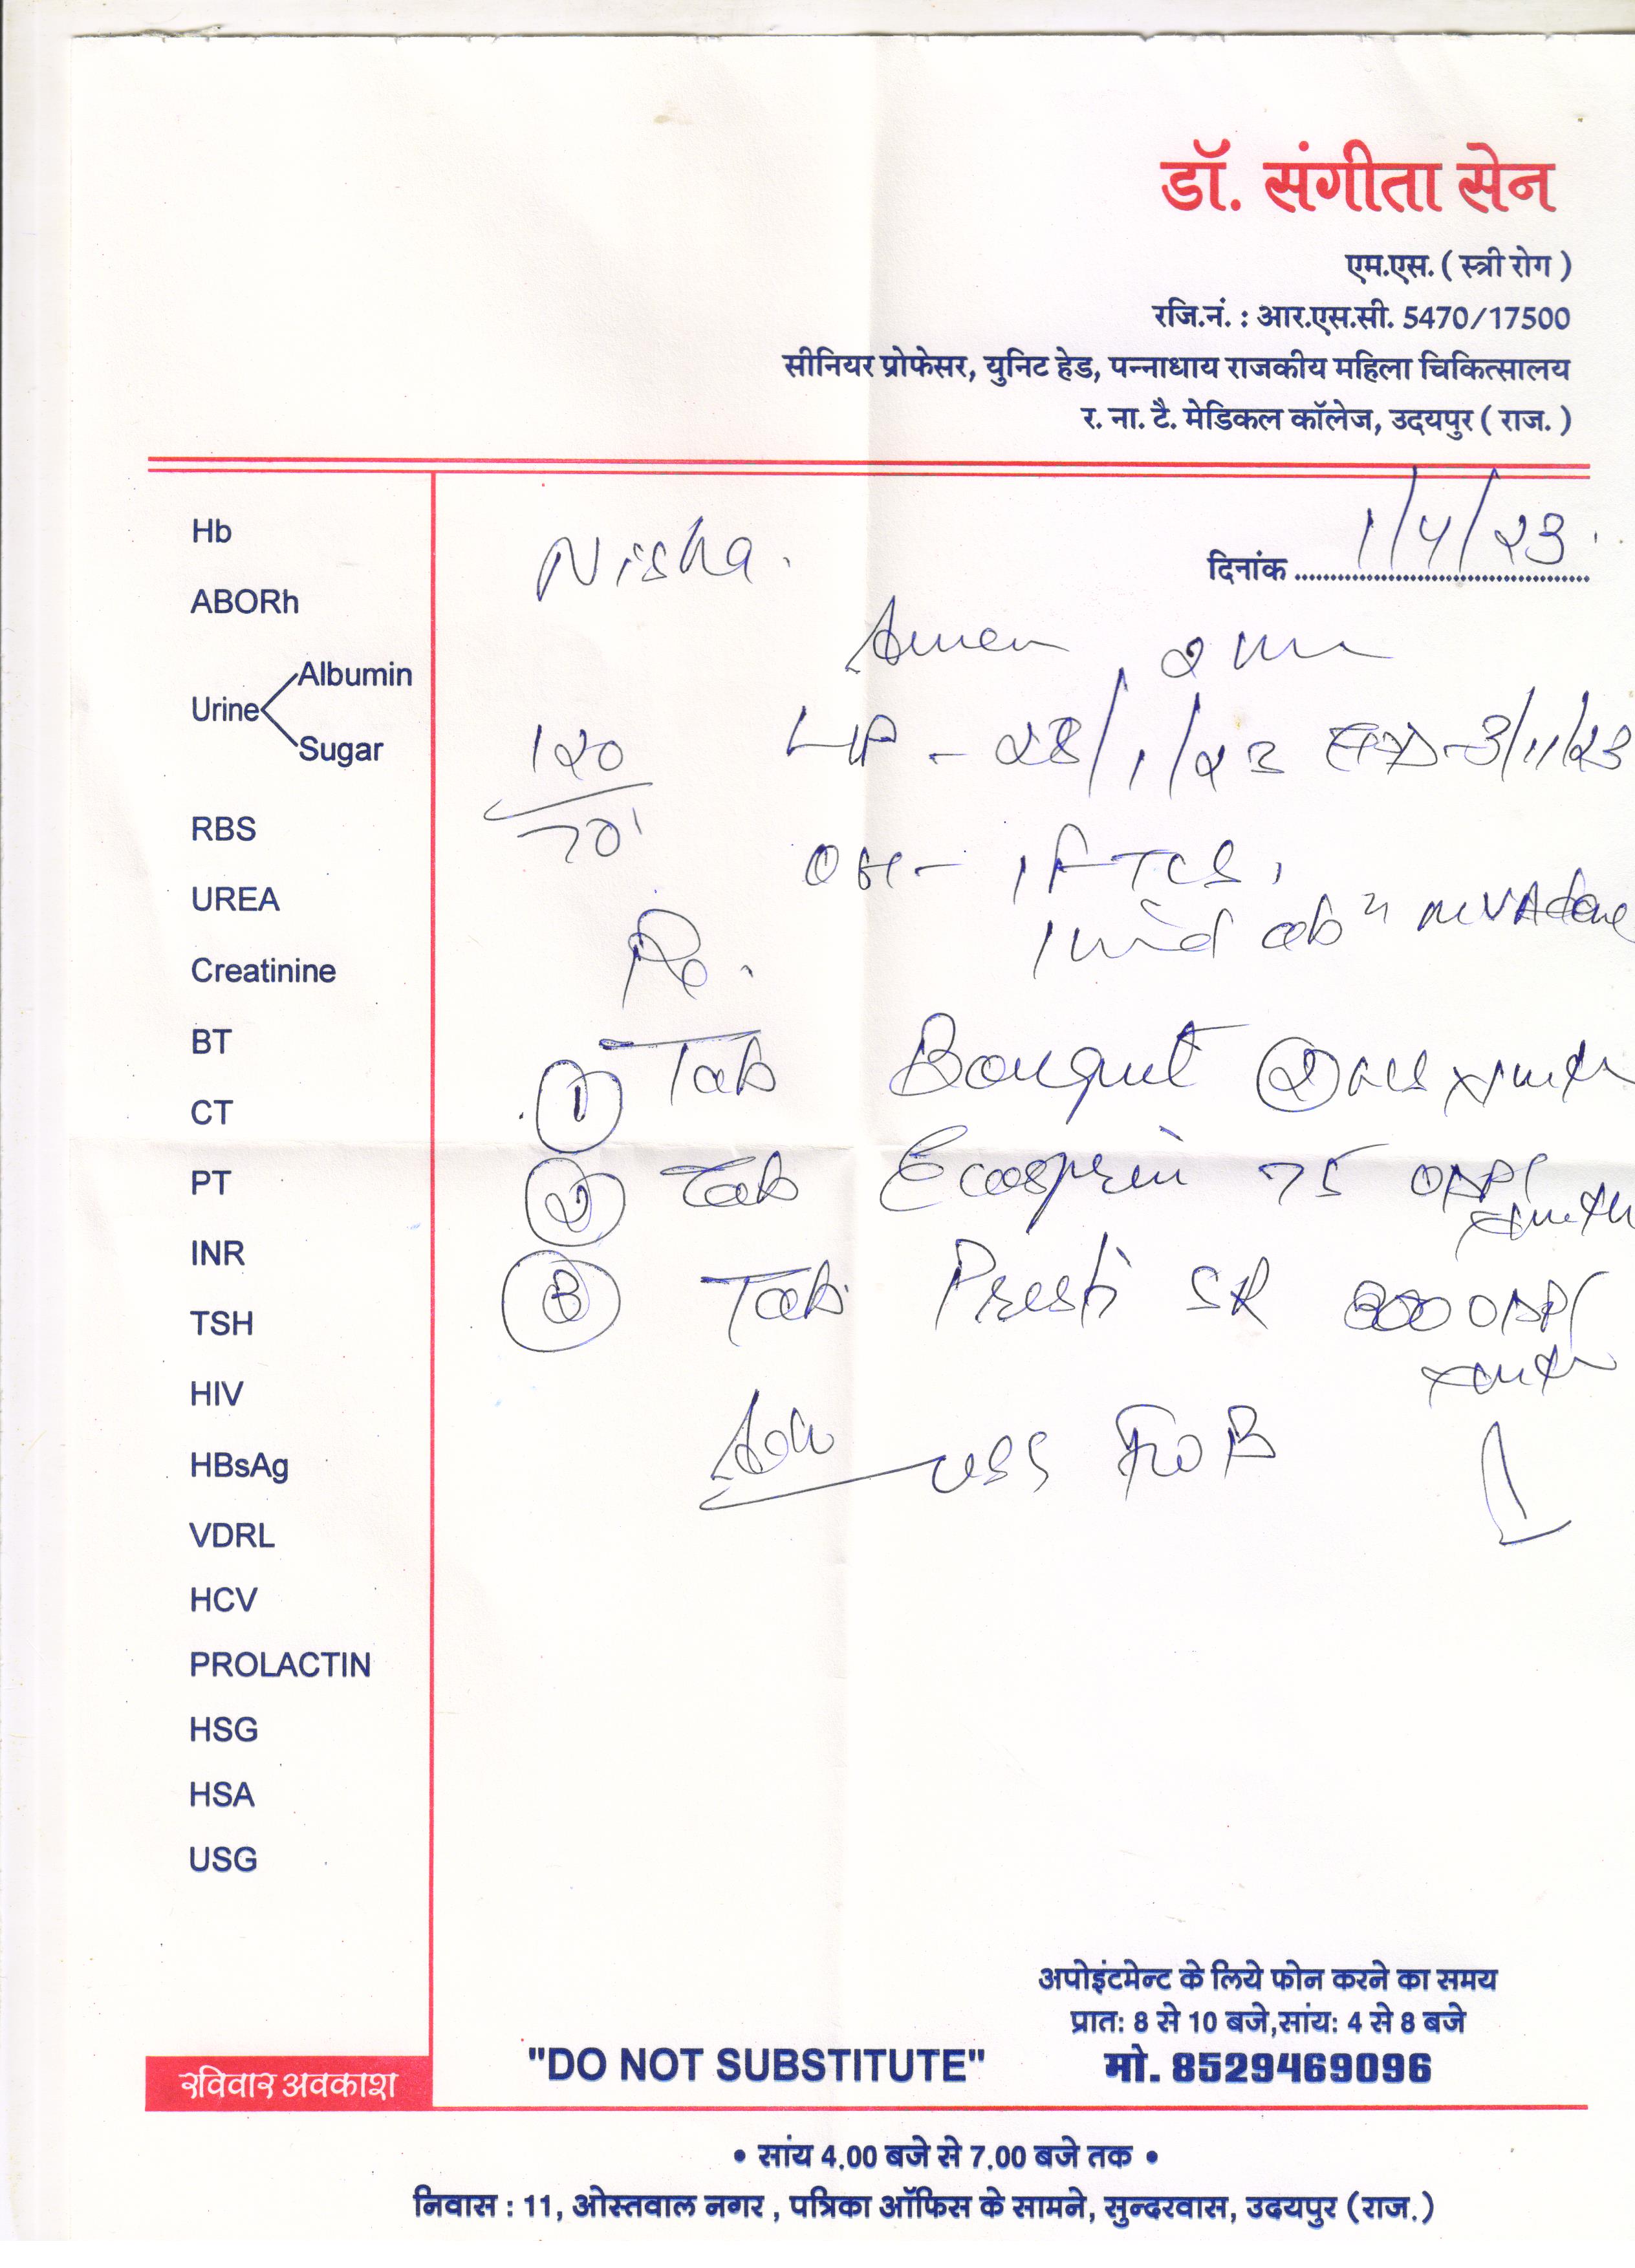 डॉ. संगीता सेन
एम.एस. ( स्त्री रोग )
रजि.नं. : आर.एस.सी. 5470/17500
सीनियर प्रोफेसर, युनिट हेड, पन्नाधाय राजकीय महिला चिकित्सालय
र. ना. टै. मेडिकल कॉलेज, उदयपुर ( राज. )
Nisha.
दिनांक 1/4/23
Amen 2
120/70
LMP - 28/1/23 EDD - 3/11/23
OH - 1 FTCS,
1 ab MVA done
Rx.
① Tab Bouquet
② Tab Ecosprin 75
③ Tab. SR
Adv USG
Hb
ABORh
Urine
Albumin
Sugar
RBS
UREA
Creatinine
BT
CT
PT
INR
TSH
HIV
HBsAg
VDRL
HCV
PROLACTIN
HSG
HSA
USG
रविवार अवकाश
"DO NOT SUBSTITUTE"
अपोइंटमेन्ट के लिये फोन करने का समय
प्रातः 8 से 10 बजे,सांयः 4 से 8 बजे
मो. 8529469096
• सांय 4.00 बजे से 7.00 बजे तक •
निवास : 11, ओस्तवाल नगर , पत्रिका ऑफिस के सामने, सुन्दरवास, उदयपुर (राज.)